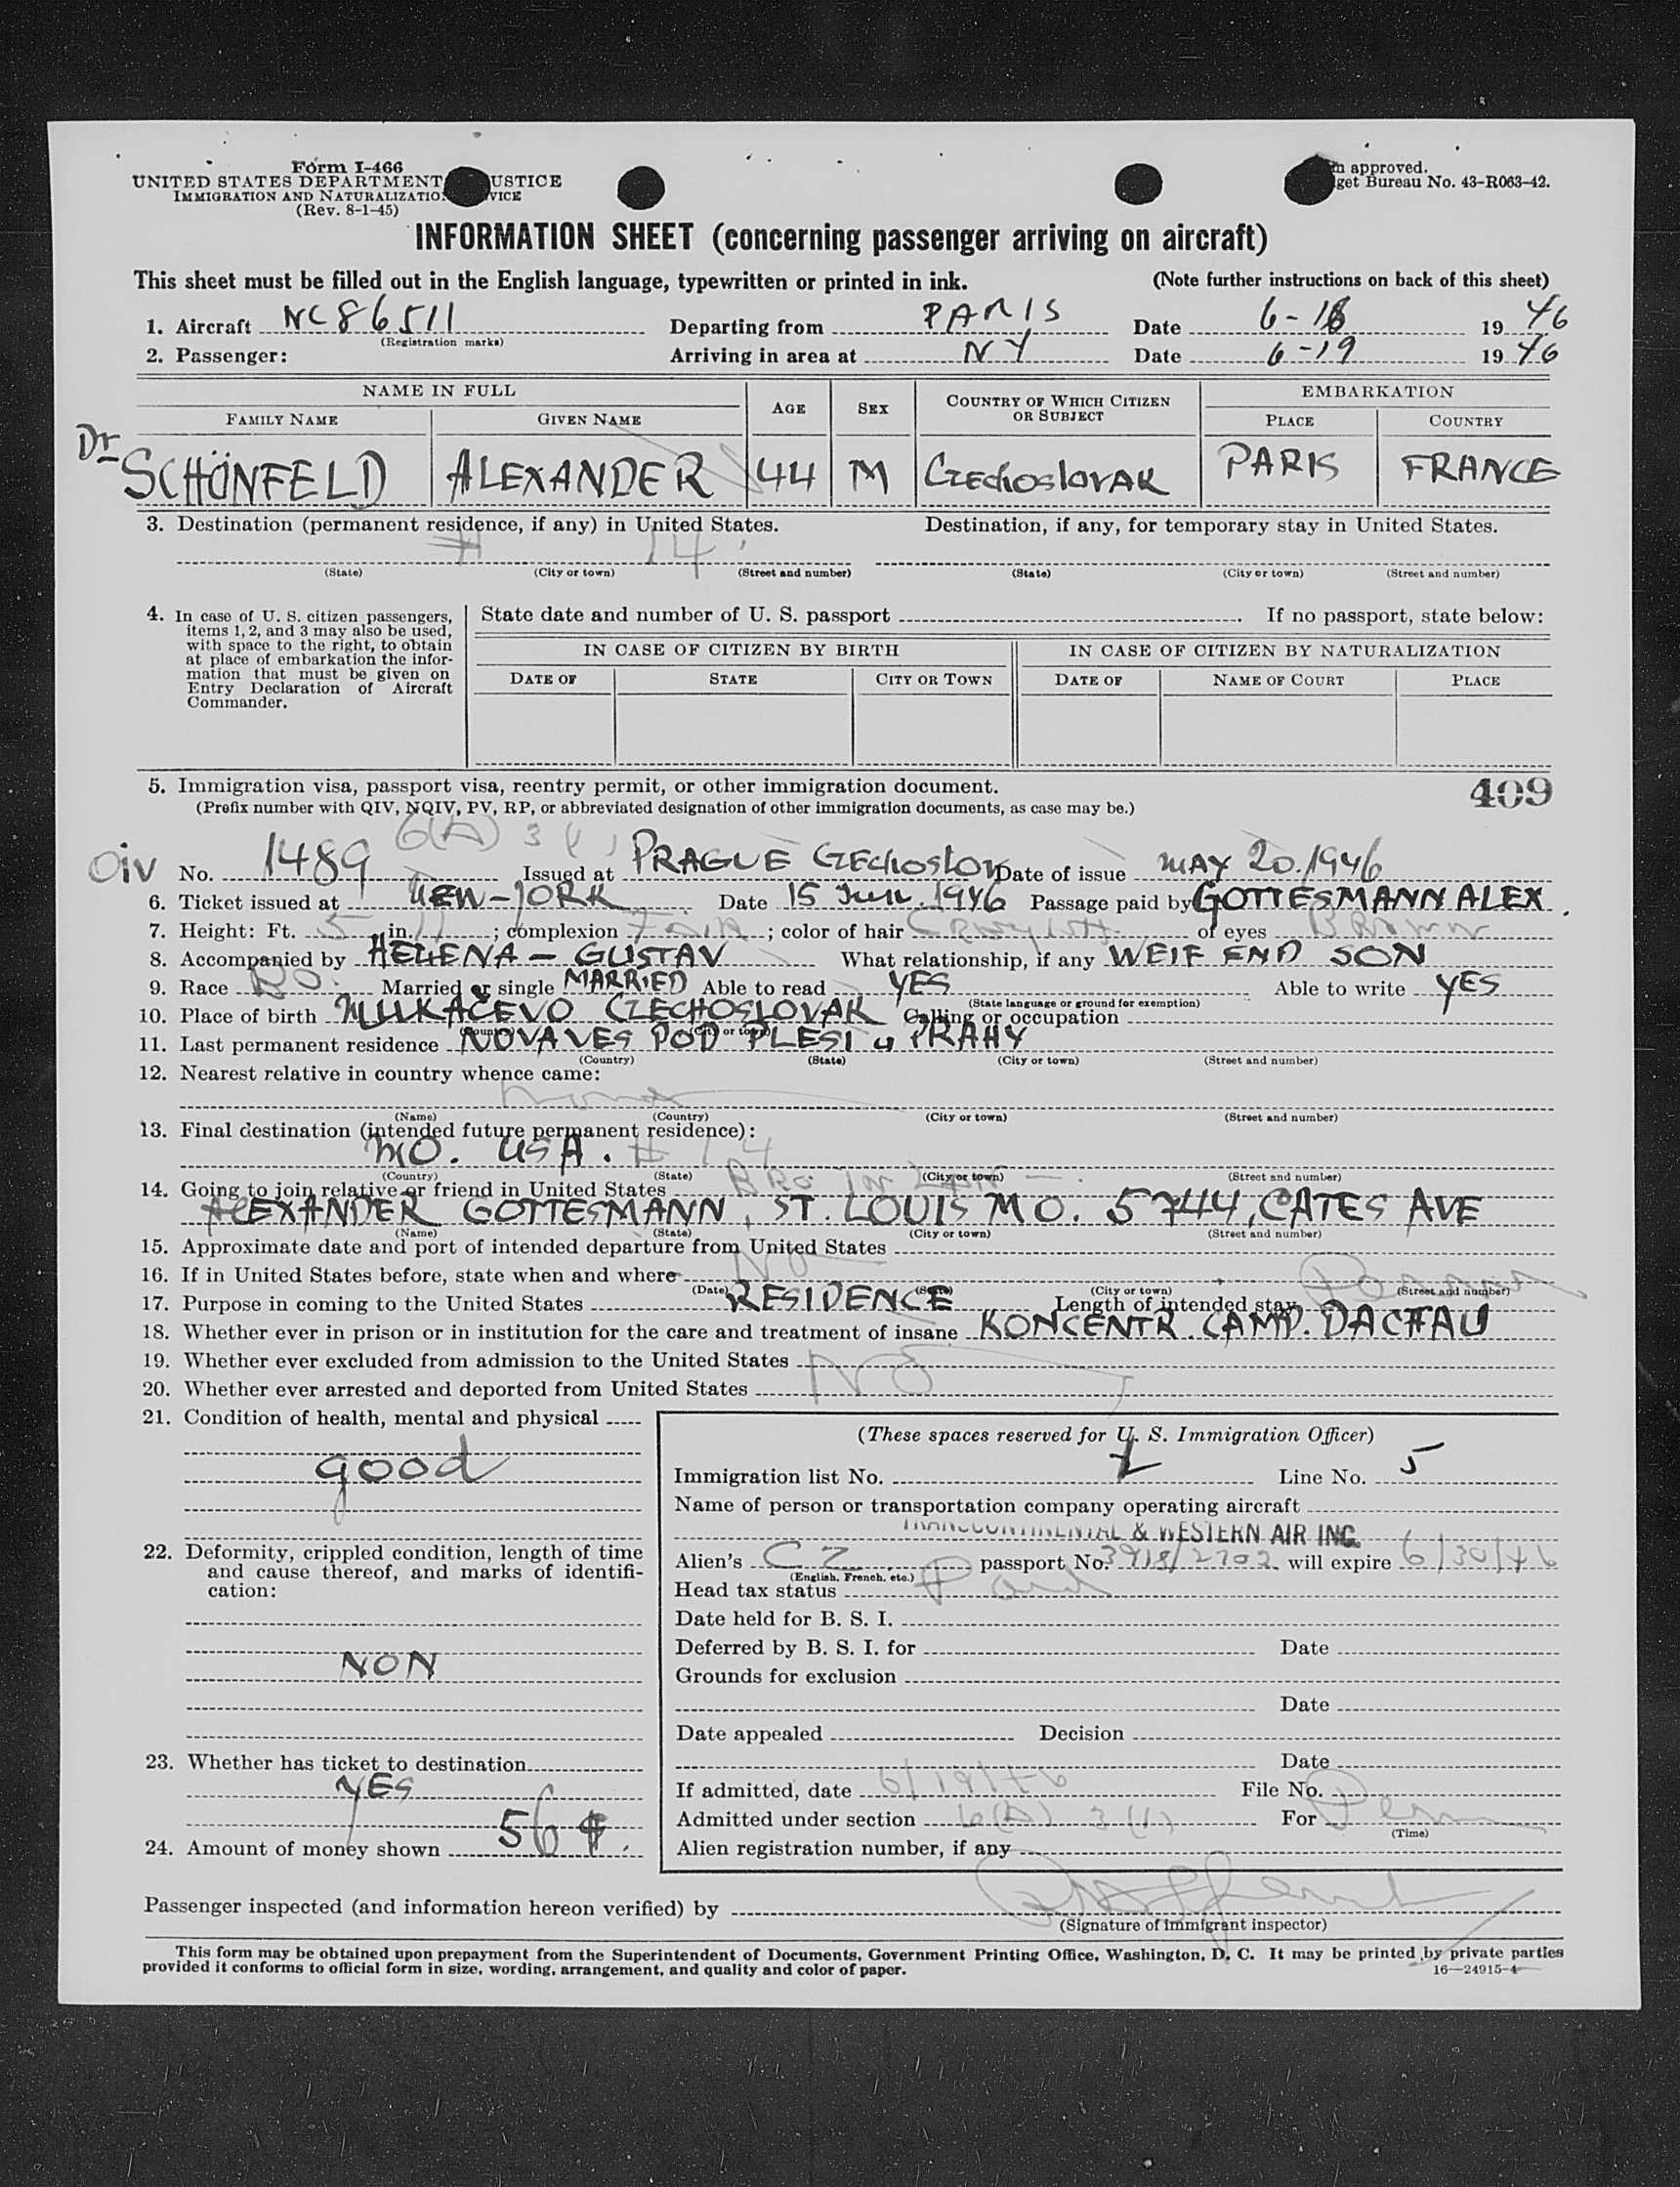 Form I-466
UNITED STATES DEPARTMENT USTICE
IMMIGRATION AND NATURALIZATIO VICE
(Rev. 8-1-45)
approved.
get Bureau No. 43-R063-42.
INFORMATION SHEET (concerning passenger arriving on aircraft)
This sheet must be filled out in the English language, typewritten or printed in ink. (Note further instructions on back of this sheet)
1. Aircraft NC86511 Departing from PARIS Date 6-18 1946
(Registration marks)
2. Passenger: Arriving in area at NY Date 6-19 1946
NAME IN FULL AGE SEX COUNTRY OF WHICH CITIZEN OR SUBJECT EMBARKATION
FAMILY NAME GIVEN NAME PLACE COUNTRY
Dr SCHÖNFELD ALEXANDER 44 M CZECHOSLOVAK PARIS FRANCE
3. Destination (permanent residence, if any) in United States. Destination, if any, for temporary stay in United States.
# 14
(State) (City or town) (Street and number) (State) (City or town) (Street and number)
4. In case of U. S. citizen passengers, items 1, 2, and 3 may also be used, with space to the right, to obtain at place of embarkation the information that must be given on Entry Declaration of Aircraft Commander.
State date and number of U. S. passport . If no passport, state below:
IN CASE OF CITIZEN BY BIRTH IN CASE OF CITIZEN BY NATURALIZATION
DATE OF STATE CITY OR TOWN DATE OF NAME OF COURT PLACE
5. Immigration visa, passport visa, reentry permit, or other immigration document. 409
(Prefix number with QIV, NQIV, PV, RP, or abbreviated designation of other immigration documents, as case may be.)
6(A) 3(1)
QIV No. 1489 Issued at PRAGUE CZECHOSLOV Date of issue MAY 20. 1946
6. Ticket issued at NEW-JORK Date 15 Jun. 1946 Passage paid by GOTTESMANN ALEX.
7. Height: Ft. 5 in. 11; complexion Fair; color of hair of eyes Brown
8. Accompanied by HELENA - GUSTAV What relationship, if any WEIF END SON
9. Race Married or single MARRIED Able to read YES Able to write YES
(State language or ground for exemption)
10. Place of birth MUKAČEVO CZECHOSLOVAK Calling or occupation
(Country) (City or town)
11. Last permanent residence NOVA VES POD PLESI u PRAHY
(Country) (State) (City or town) (Street and number)
12. Nearest relative in country whence came:
none
(Name) (Country) (City or town) (Street and number)
13. Final destination (intended future permanent residence):
MO. USA. # 14
(Country) (State) (City or town) (Street and number)
14. Going to join relative or friend in United States Bro in Law
ALEXANDER GOTTESMANN, ST. LOUIS MO. 5744, CATES AVE
(Name) (State) (City or town) (Street and number)
15. Approximate date and port of intended departure from United States
16. If in United States before, state when and where No
(Date) (State) (City or town) (Street and number)
17. Purpose in coming to the United States RESIDENCE Length of intended stay Perman
18. Whether ever in prison or in institution for the care and treatment of insane KONCENTR. CAMP. DACHAU
19. Whether ever excluded from admission to the United States NO
20. Whether ever arrested and deported from United States
21. Condition of health, mental and physical
good
22. Deformity, crippled condition, length of time and cause thereof, and marks of identification:
NON
23. Whether has ticket to destination
YES
24. Amount of money shown 56 $.
(These spaces reserved for U. S. Immigration Officer)
Immigration list No. Line No. 5
Name of person or transportation company operating aircraft
TRANSCONTINENTAL & WESTERN AIR INC.
Alien's CZ passport No. 3918/2702 will expire 6/30/46
(English, French, etc.)
Head tax status Paid
Date held for B. S. I.
Deferred by B. S. I. for Date
Grounds for exclusion
Date
Date appealed Decision
Date
If admitted, date 6/19/46 File No.
Admitted under section 6(A) 3(1) For Perm
(Time)
Alien registration number, if any
Passenger inspected (and information hereon verified) by
(Signature of immigrant inspector)
This form may be obtained upon prepayment from the Superintendent of Documents, Government Printing Office, Washington, D. C. It may be printed by private parties
provided it conforms to official form in size, wording, arrangement, and quality and color of paper. 16—24915-4